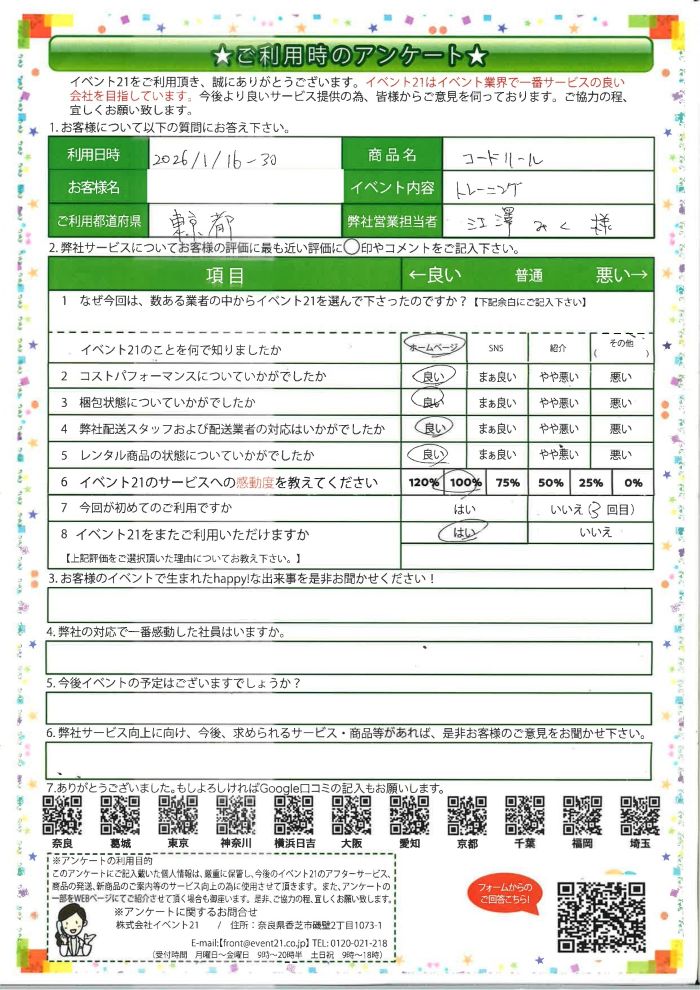 ★ご利用時のアンケート★
イベント21をご利用頂き、誠にありがとうございます。イベント21はイベント業界で一番サービスの良い
会社を目指しています。今後より良いサービス提供の為、皆様からご意見を伺っております。ご協力の程、
宜しくお願い致します。
1.お客様について以下の質問にお答え下さい。
利用日時 2026/1/16-30 商品名 コードリール
お客様名 イベント内容 トレーニング
ご利用都道府県 東京都 弊社営業担当者 江澤 みく 様
2.弊社サービスについてお客様の評価に最も近い評価に◯印やコメントをご記入下さい。
項目 ←良い 普通 悪い→
1 なぜ今回は、数ある業者の中からイベント21を選んで下さったのですか？【下記余白にご記入下さい】
イベント21のことを何で知りましたか ホームページ SNS 紹介 その他( )
2 コストパフォーマンスについていかがでしたか 良い まぁ良い やや悪い 悪い
3 梱包状態についていかがでしたか 良い まぁ良い やや悪い 悪い
4 弊社配送スタッフおよび配送業者の対応はいかがでしたか 良い まぁ良い やや悪い 悪い
5 レンタル商品の状態についていかがでしたか 良い まぁ良い やや悪い 悪い
6 イベント21のサービスへの感動度を教えてください 120% 100% 75% 50% 25% 0%
7 今回が初めてのご利用ですか はい いいえ(3回目)
8 イベント21をまたご利用いただけますか はい いいえ
【上記評価をご選択頂いた理由についてお教え下さい。】
3.お客様のイベントで生まれたhappy!な出来事を是非お聞かせください！
4.弊社の対応で一番感動した社員はいますか。
5.今後イベントの予定はございますでしょうか？
6.弊社サービス向上に向け、今後、求められるサービス・商品等があれば、是非お客様のご意見をお聞かせ下さい。
7.ありがとうございました。もしよろしければGoogle口コミの記入もお願いします。
奈良 葛城 東京 神奈川 横浜日吉 大阪 愛知 京都 千葉 福岡 埼玉
※アンケートの利用目的
このアンケートにご記入戴いた個人情報は、厳重に保管し、今後のイベント21のアフターサービス、
商品の発送、新商品のご案内等のサービス向上の為に使用させて頂きます。また、アンケートの
一部をWEBページにてご紹介させて頂く場合も御座います。是非、ご協力の程、宜しくお願い致します。
※アンケートに関するお問合せ
株式会社イベント21 / 住所：奈良県香芝市磯壁2丁目1073-1
E-mail:【front@event21.co.jp】 TEL: 0120-021-218
(受付時間 月曜日〜金曜日 9時〜20時半 土日祝 9時〜18時)
フォームからの
ご回答こちら!